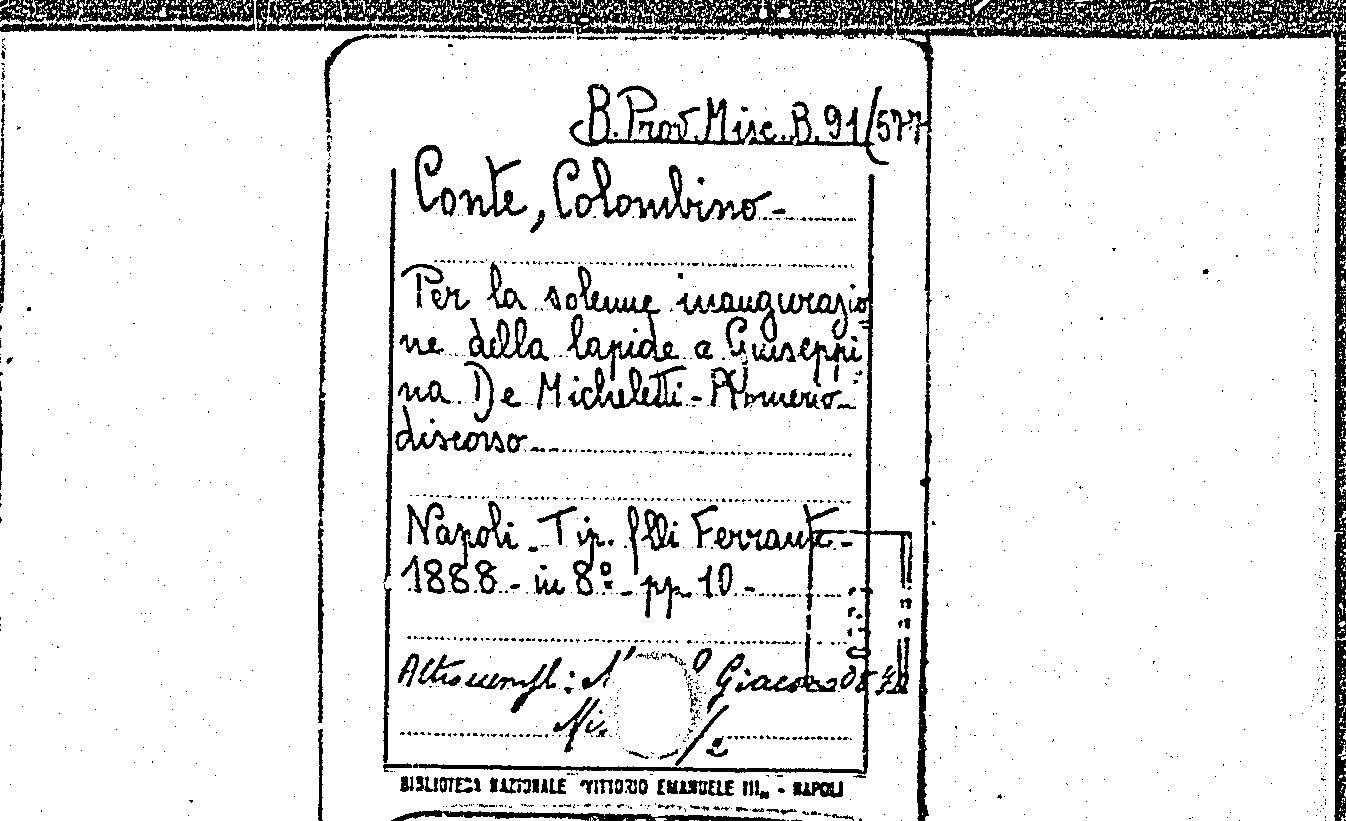 B. Prov. Misc. B. 91/577
Conte, Colombino -
Per la solenne inaugurazio=
ne della lapide a Giuseppi=
na De Micheletti -
discorso -
Napoli - Tip. flli Ferrante -
1888 - in 8º - pp. 10 -
Giacomo
/2
BIBLIOTECA NAZIONALE "VITTORIO EMANUELE III„ - NAPOLI